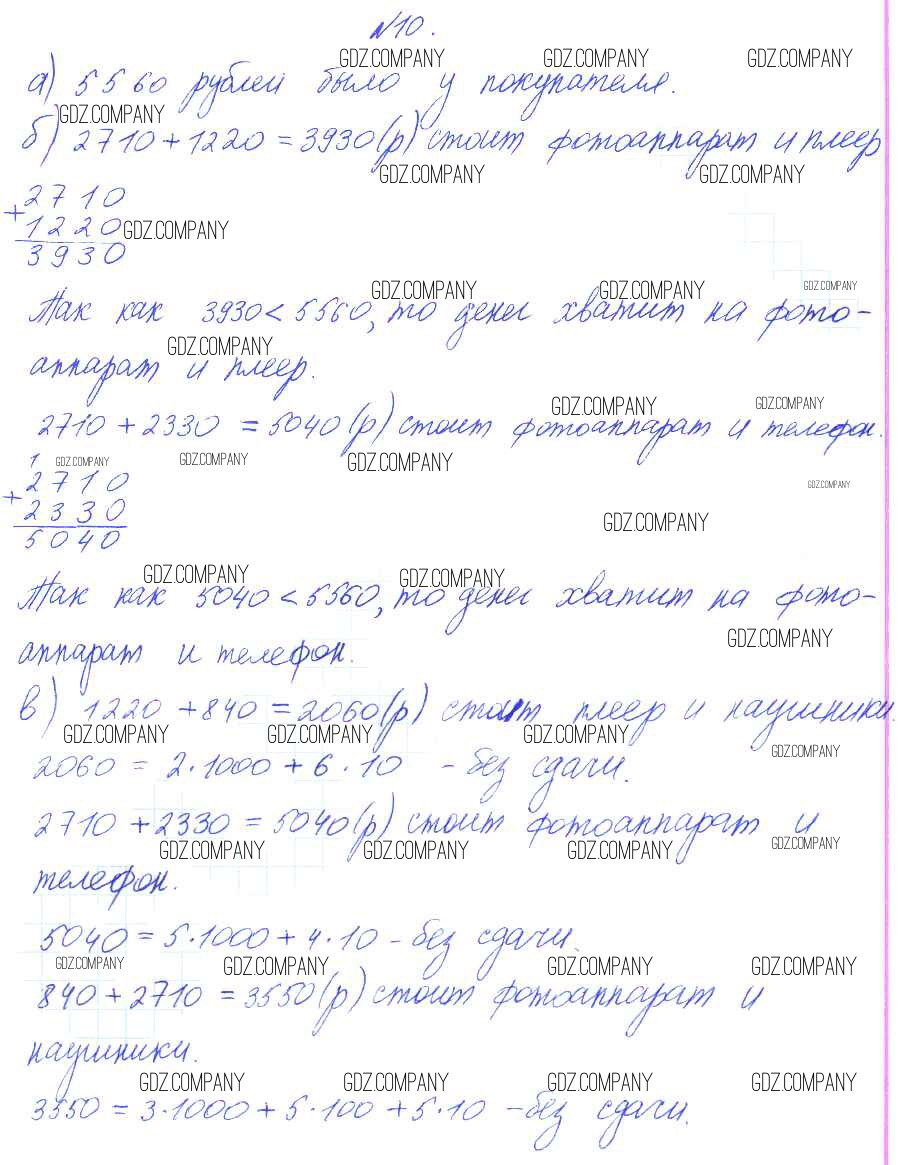 №10.
GDZ.COMPANY GDZ.COMPANY GDZ.COMPANY
а) 5560 рублей было у покупателя.
GDZ.COMPANY
б) 2710 + 1220 = 3930 (р) стоит фотоаппарат и плеер
GDZ.COMPANY GDZ.COMPANY
2710
+ 1220 GDZ.COMPANY
3930
GDZ.COMPANY GDZ.COMPANY GDZ.COMPANY
Так как 3930 < 5560, то денег хватит на фото-
GDZ.COMPANY
аппарат и плеер.
GDZ.COMPANY GDZ.COMPANY
2710 + 2330 = 5040 (р) стоит фотоаппарат и телефон.
1 GDZ.COMPANY GDZ.COMPANY GDZ.COMPANY
2710 GDZ.COMPANY
+ 2330 GDZ.COMPANY
5040
GDZ.COMPANY GDZ.COMPANY
Так как 5040 < 5560, то денег хватит на фото-
GDZ.COMPANY
аппарат и телефон.
в) 1220 + 840 = 2060 (р) стоит плеер и наушники.
GDZ.COMPANY GDZ.COMPANY GDZ.COMPANY GDZ.COMPANY
2060 = 2·1000 + 6·10 - без сдачи.
2710 + 2330 = 5040 (р) стоит фотоаппарат и
GDZ.COMPANY GDZ.COMPANY GDZ.COMPANY GDZ.COMPANY
телефон.
5040 = 5·1000 + 4·10 - без сдачи.
GDZ.COMPANY GDZ.COMPANY GDZ.COMPANY GDZ.COMPANY
840 + 2710 = 3550 (р) стоит фотоаппарат и
наушники.
GDZ.COMPANY GDZ.COMPANY GDZ.COMPANY GDZ.COMPANY
3550 = 3·1000 + 5·100 + 5·10 - без сдачи.